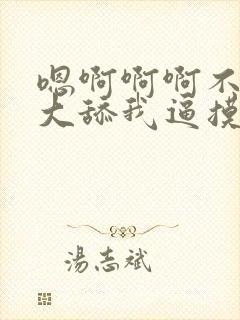 嗯啊啊啊不
大舔我逼摸
湯志斌